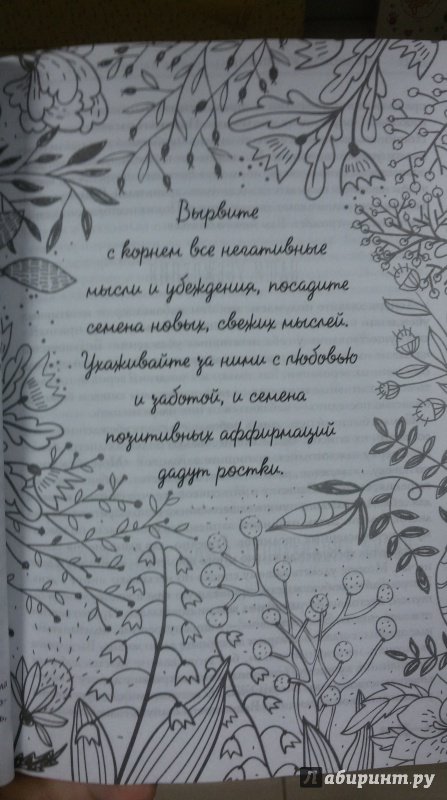 Вырвите
с корнем все негативные
мысли и убеждения, посадите
семена новых, свежих мыслей.
Ухаживайте за ними с любовью
и заботой, и семена
позитивных аффирмаций
дадут ростки.
Лабиринт.ру